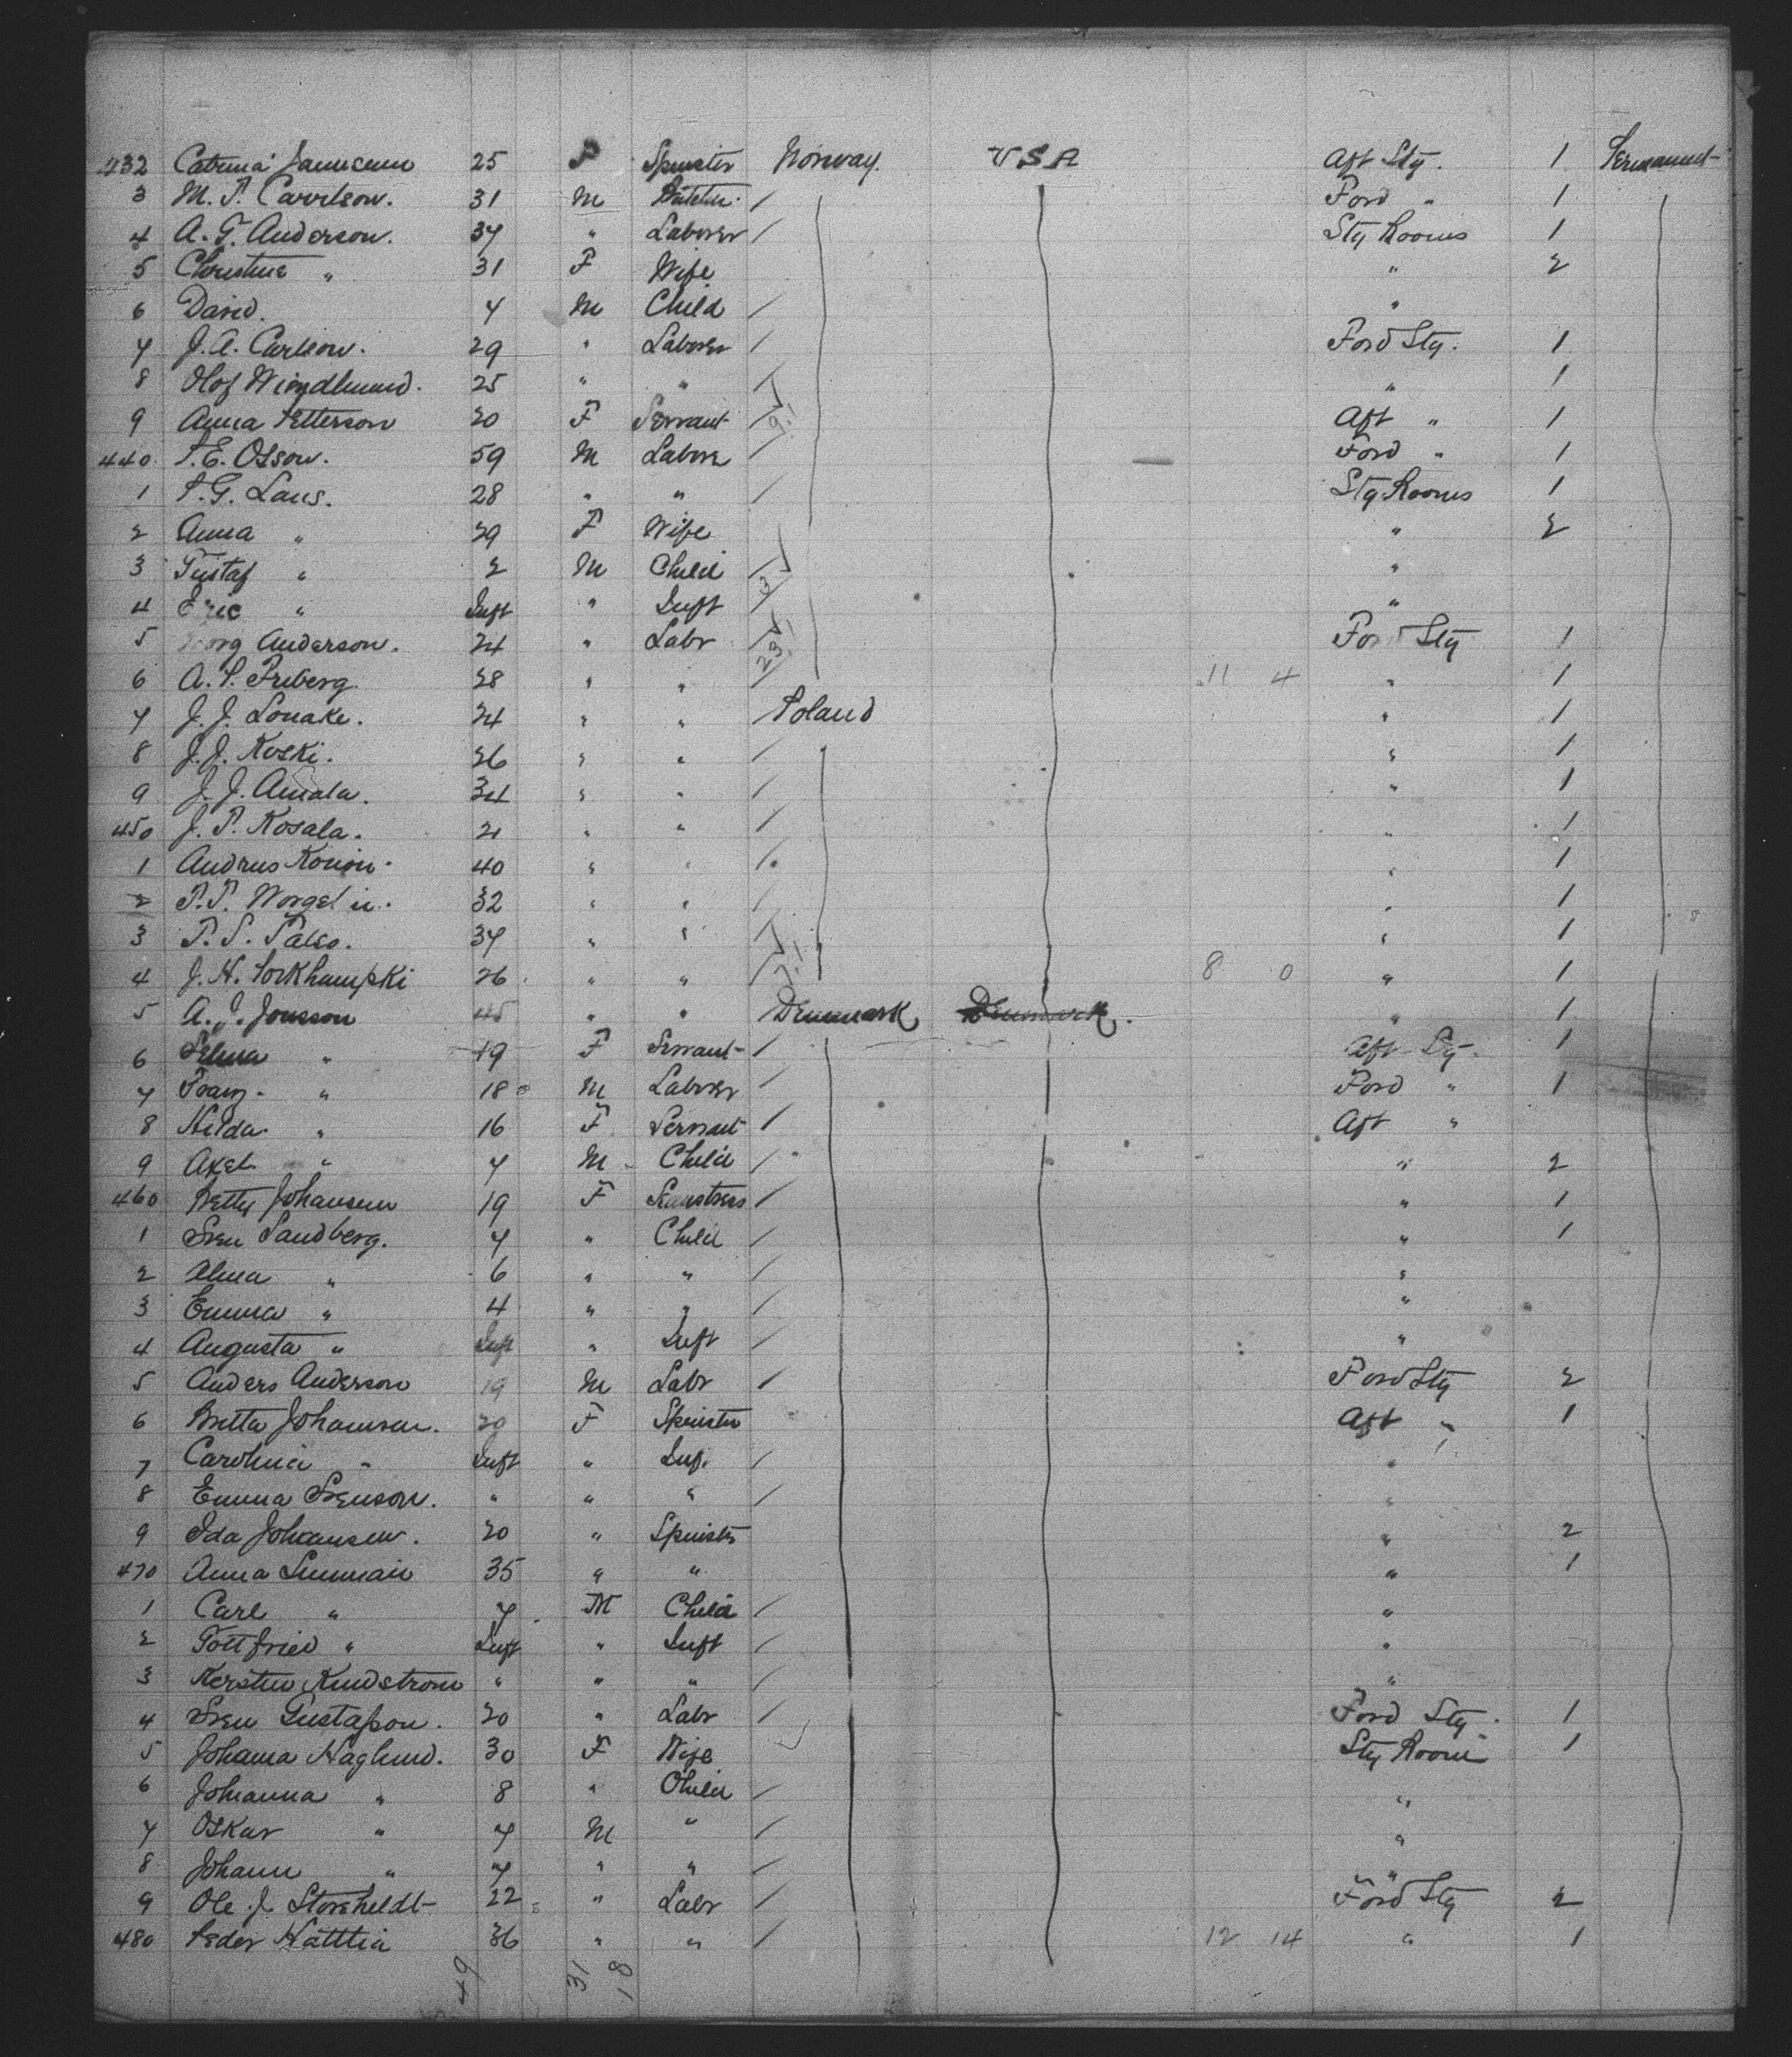 432 Catrina Jamieson 25 F Spinster Norway. USA Aft Stg. 1 Permanent
3 M. P. Carrlson. 31 M Butcher / Ford " 1
4 A. G. Anderson. 34 " Laborer / Stg Rooms 1
5 Christine " 31 F Wife " 2
6 David. 4 M Child / "
7 J. A. Carlson. 29 " Laborer / Ford Stg. 1
8 Olof Windlund. 25 " " / " 1
9 Anna Petterson 20 F Servant / 9! Aft " 1
440 P. E. Olsson. 59 M Labore / Ford " 1
1 P. G. Laus. 28 " " / Stg Rooms 1
2 Anna " 29 F Wife " 2
3 Gustaf " 2 M Child / 3 "
4 Eric " Inft " Inft / "
5 Georg Anderson. 24 " Labr / 23! Ford Stg 1
6 A. P. Friberg. 28 " " / 11 4 " 1
7 J. J. Louake. 24 " " Poland " 1
8 J. J. Koski. 26 " " / " 1
9 J. J. Amala. 34 " " / " 1
450 J. P. Kosala. 21 " " / " 1
1 Andrus Konon. 40 " " / " 1
2 P. P. Worgelin. 32 " " / " 1
3 P. S. Palso. 34 " " / " 1
4 J. H. Porkhampki 26 " " / 7! 8 0 " 1
5 A. J. Jonsson 45 " " Denmark Denmark. " 1
6 Selma " 19 F Servant / Aft Stg. 1
7 Franz. " 18 M Laborer / Ford " 1
8 Hilda " 16 F Servant / Aft "
9 Axel " 7 M Child / " 2
460 Betty Johansen 19 F Seamstress / " 1
1 Sven Sandberg. 7 " Child / " 1
2 Alma " 6 " " / "
3 Emma " 4 " " / "
4 Augusta " Inft " Inft / "
5 Anders Anderson 19 M Labr / Ford Stg 2
6 Britta Johansen. 20 F Spinster Aft " 1
7 Carolina " Inft " Inf. / "
8 Emma Svenson. " " " / "
9 Ida Johansen. 20 " Spinster " 2
470 Anna Linman 35 " " " 1
1 Carl " 7 M Child / "
2 Gottfried " Inft " Inft / "
3 Kersten Kindstrom " " " / "
4 Sven Gustafson. 20 " Labr / Ford Stg. 1
5 Johanna Haglund. 30 F Wife Stg Room 1
6 Johanna " 8 " Child / "
7 Oskar " 7 M " / "
8 Johann " 7 " " / "
9 Ole. J. Storsheldt 22 " Labr / Ford Stg 2
480 Peder Hattlia 36 " " / 12 14 " 1
49 31 18